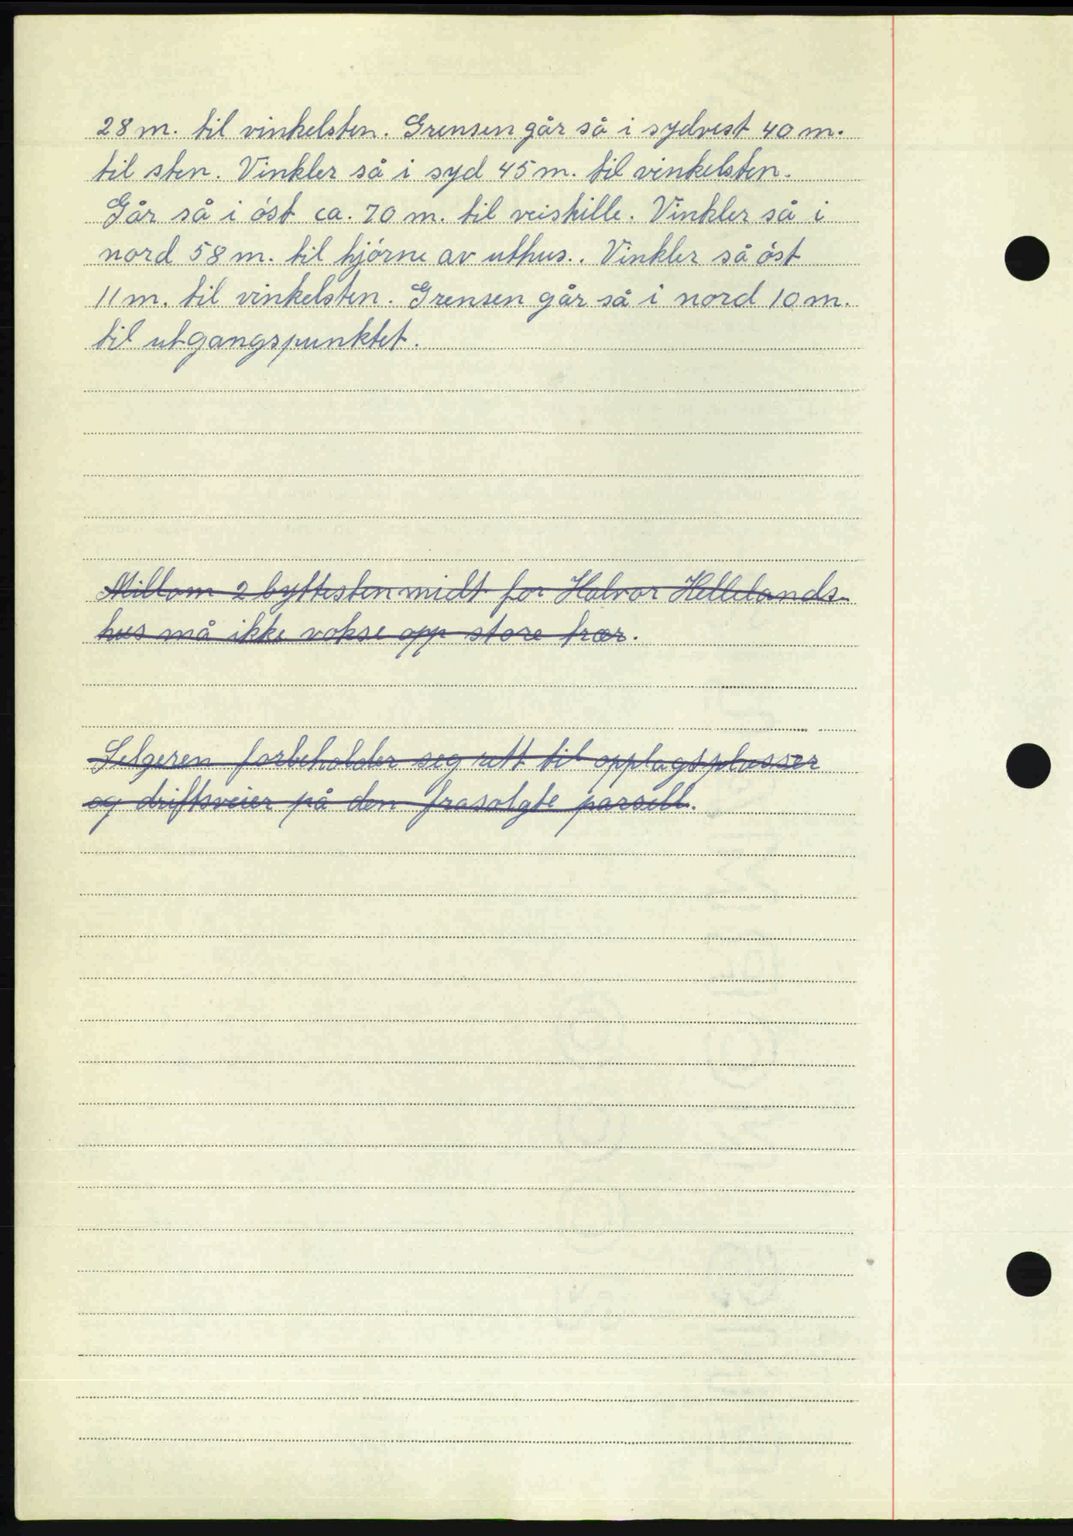 28 m. til vinkelsten. Grensen går så i sydvest 40 m.
til sten. Vinkler så i syd 45 m. til vinkelsten.
Går så i øst ca. 70 m. til veiskille. Vinkler så i
nord 58 m. til hjørne av uthus.. Vinkler så øst
11 m. til vinkelsten. Grensen går så i nord 10 m.
til utgangspunktet.
Millom 2 byttesten midt for Halvor Hellelands-
hus må ikke vokse opp store trær.
Selgeren forbeholder seg rett til opplagsplasser
og driftsveier på den frasolgte parsell.